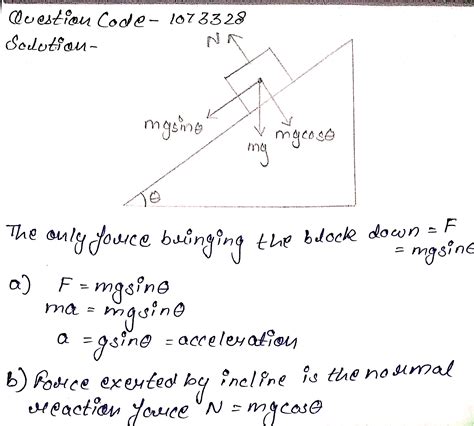 Question Code- 1073328
Solution-
N
mgsinθ
mg
mgcosθ
θ
The only force bringing the block down = F
= mgsinθ
a) F = mgsinθ
ma = mgsinθ
a = gsinθ = acceleration
b) Force exerted by incline is the normal
reaction force N = mgcosθ